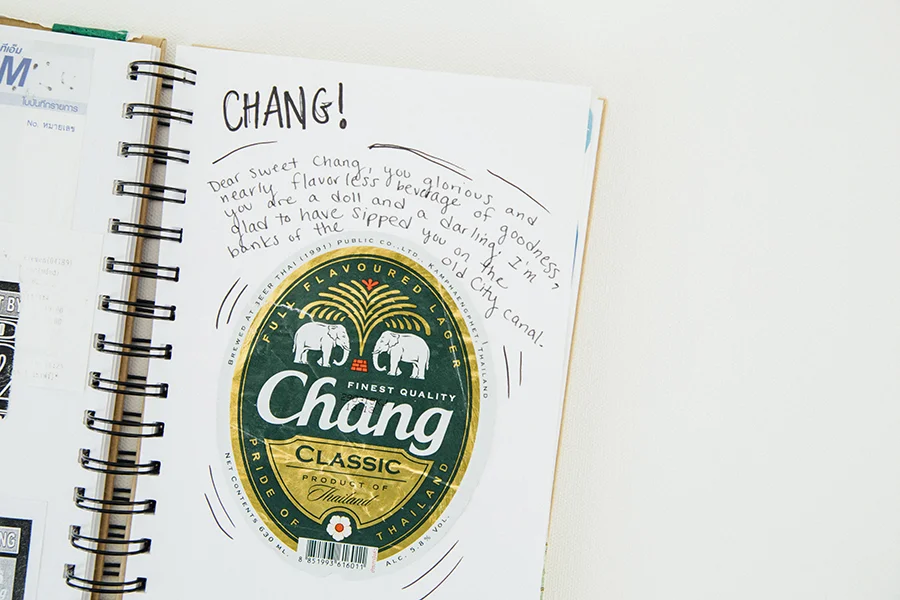 ทีเอ็ม
M
ใบบันทึกรายการ
No. หมายเลข
T BY
NG
CHANG!
Dear sweet Chang, you glorious and
nearly flavorless beverage of goodness,
you are a doll and a darling. I'm
glad to have sipped you on the
banks of the old city canal.
BREWED AT BEER THAI (1991) PUBLIC CO.,LTD., KAMPHAENGPHET, THAILAND
FULL FLAVOURED LAGER
FINEST QUALITY
Chang
CLASSIC
PRODUCT OF
Thailand
PRIDE OF THAILAND
NET CONTENTS 630 ML.
ALC. 5.8% VOL.
8 851993 616011